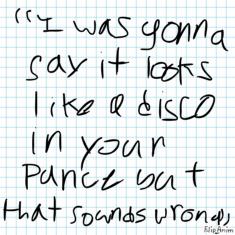 "I was gonna
say it looks
like a disco
in your
Pance but
that sounds wrong,,
FlipAnim